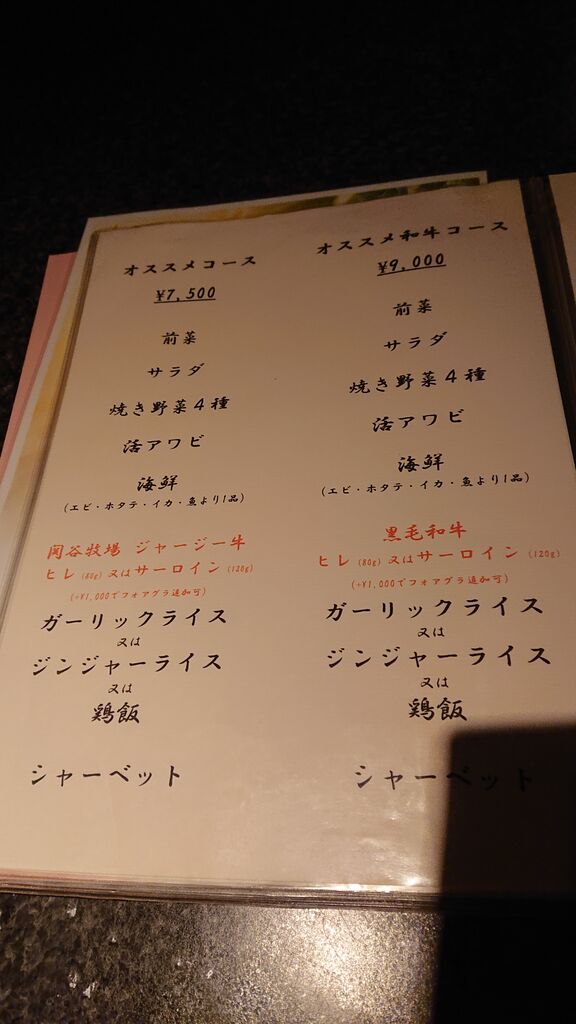 オススメコース
¥7,500
前菜
サラダ
焼き野菜4種
活アワビ
海鮮
(エビ・ホタテ・イカ・魚より1品)
岡谷牧場 ジャージー牛
ヒレ(80g)又はサーロイン(120g)
(+¥1,000でフォアグラ追加可)
ガーリックライス
又は
ジンジャーライス
又は
鶏飯
シャーベット
オススメ和牛コース
¥9,000
前菜
サラダ
焼き野菜4種
活アワビ
海鮮
(エビ・ホタテ・イカ・魚より1品)
黒毛和牛
ヒレ(80g)又はサーロイン(120g)
(+¥1,000でフォアグラ追加可)
ガーリックライス
又は
ジンジャーライス
又は
鶏飯
シャーベット